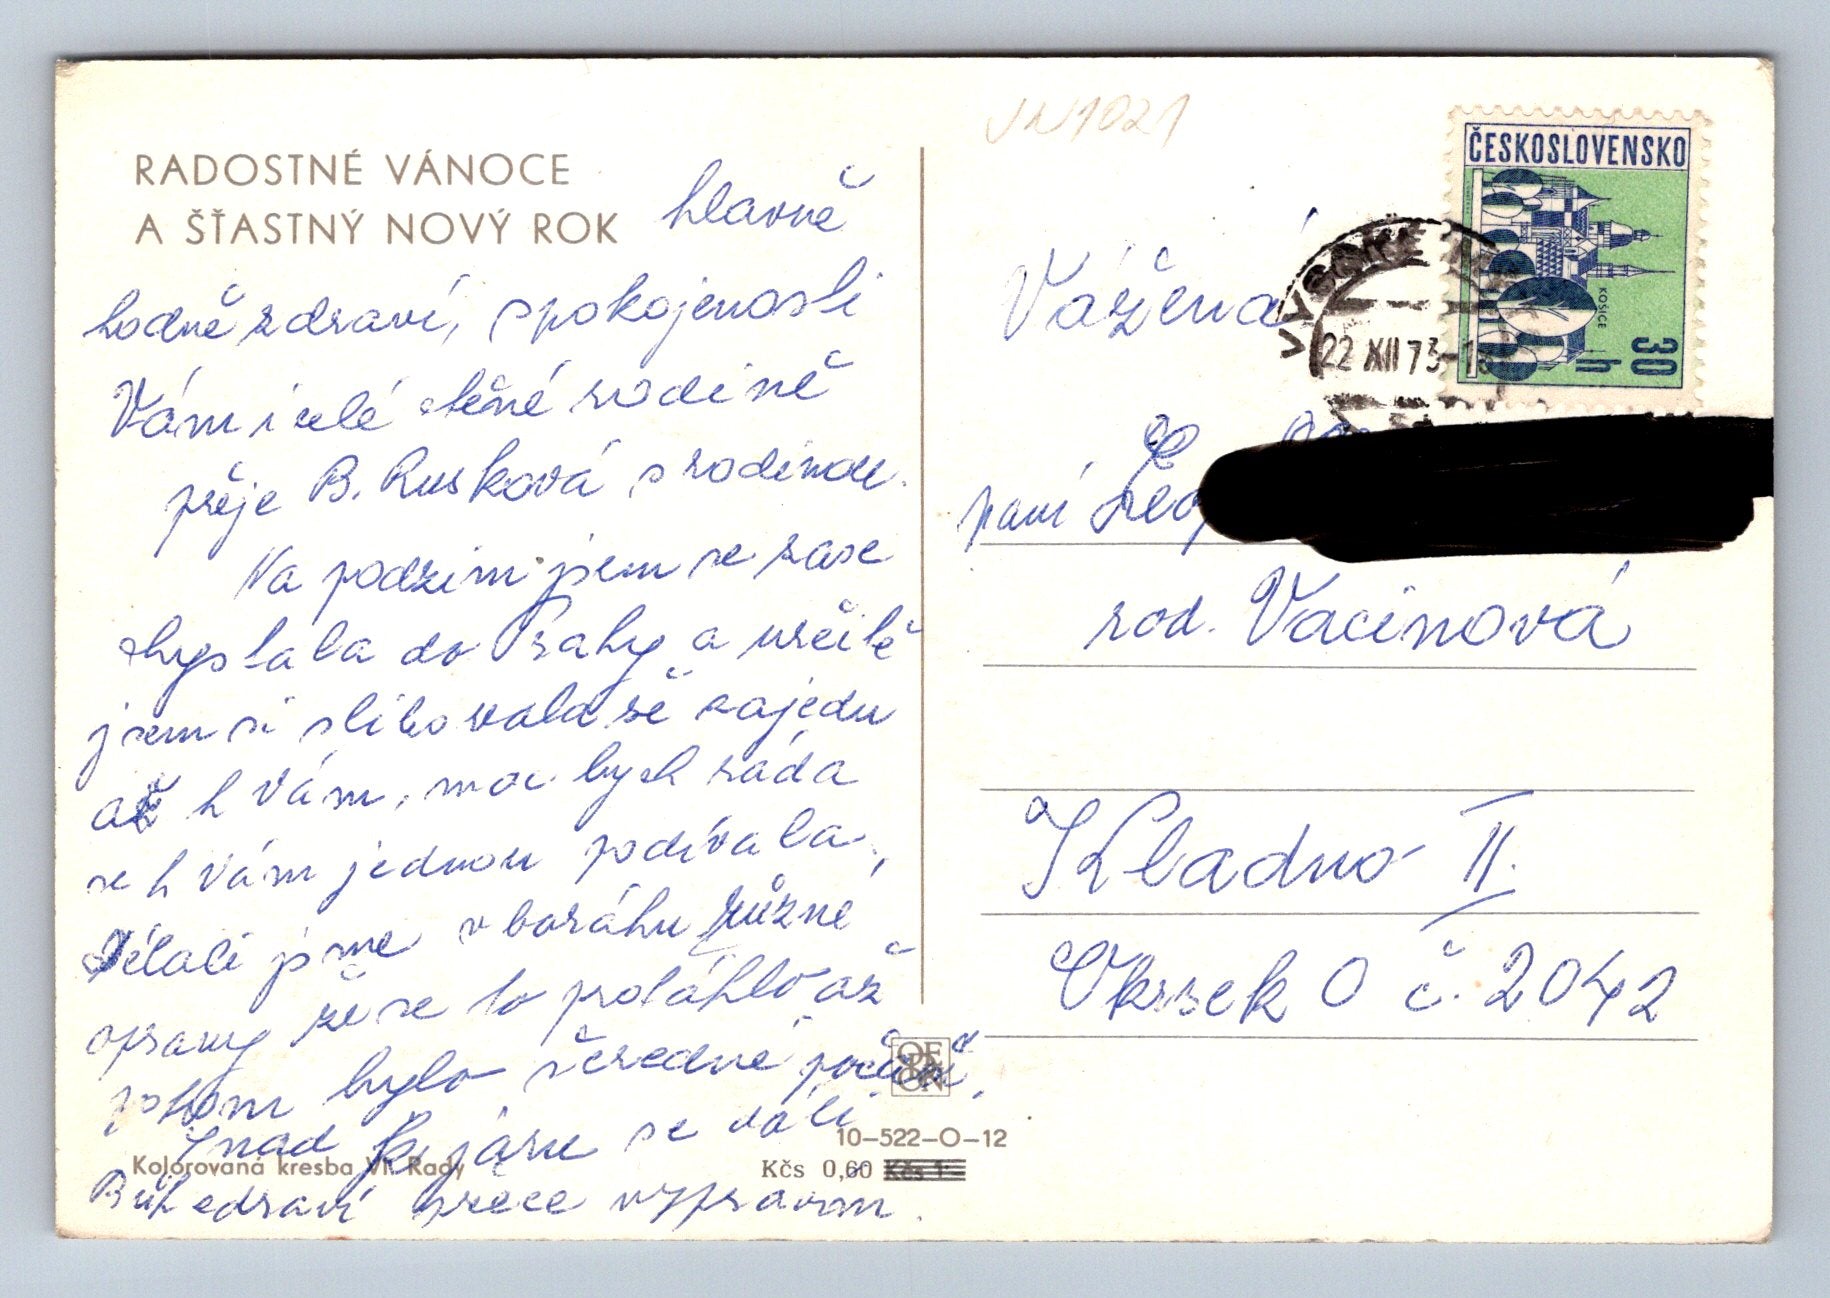 RADOSTNÉ VÁNOCE
A ŠŤASTNÝ NOVÝ ROK
hlavně
hodně zdraví, spokojenosti
Vám i celé ctěné rodině
přeje B. Rusková s rodinou.
Na podzim jsem se zase
chystala do Prahy a určitě
jsem si slibovala že zajedu
až k Vám, moc bych ráda
se k Vám jednou podívala,
dělali jsme v baráku různé
opravy že se to protáhlo až
potom bylo šeredné počasí.
Snad k jaru se dá-li
Bůh zdraví přece vypravím.
Kolorovaná kresba Vl. Rady
10-522-O-12
Kčs 0,60 Kčs 1,-
ORBIS
VN1021
ČESKOSLOVENSKO
KOŠICE
30 h
VYSOKÉ MÝTO
22 XII 73-18
Vážená
paní
rod. Vacinová
Kladno II.
Okrsek O č. 2042